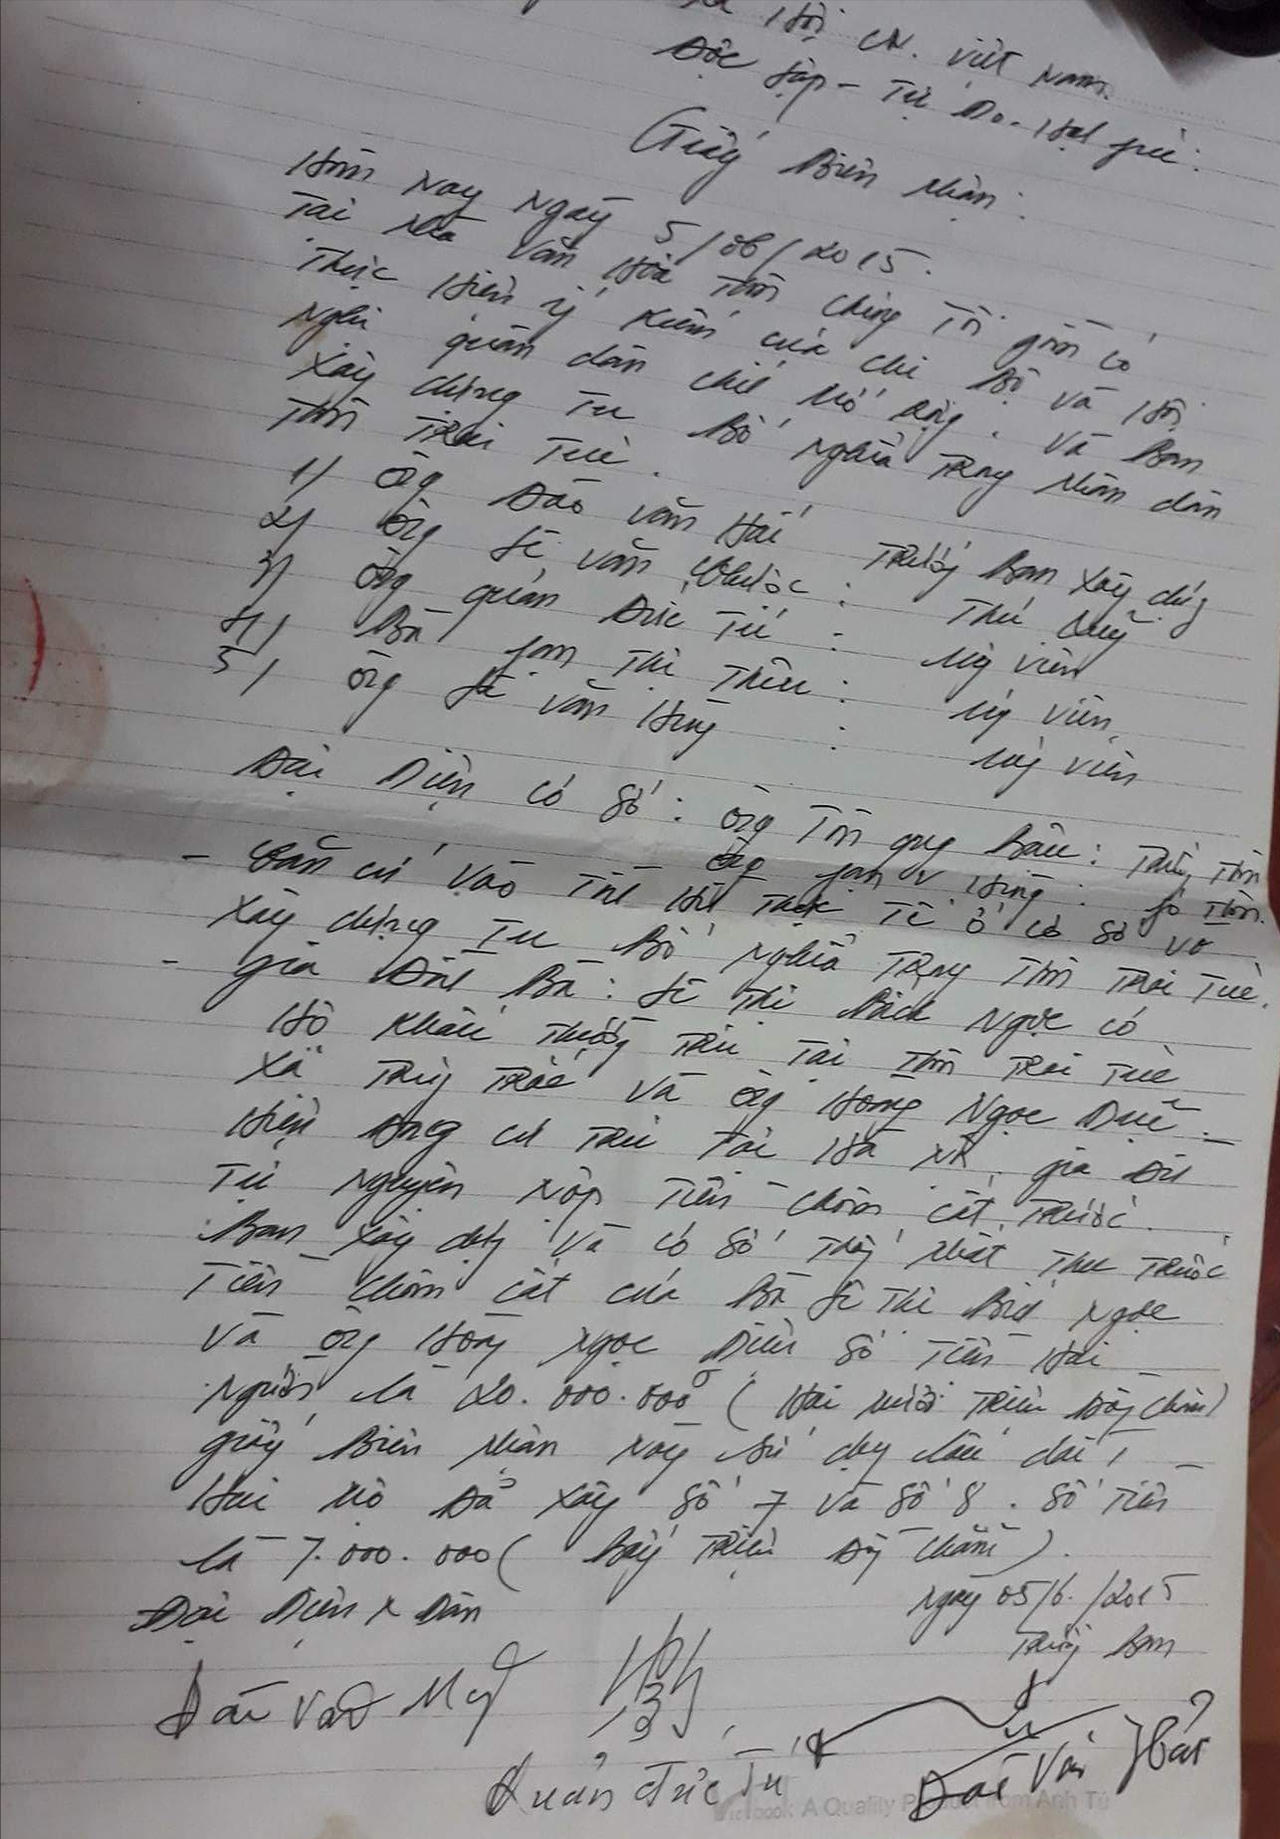 Hội CN. Việt Nam.
Độc lập - Tự Do - Hạnh phúc:
Giấy Biên Nhận:
Hôm Nay Ngày 5/06/2015.
Tại Nhà Văn Hóa Thôn chúng Tôi gồm có
Thực Hiện ý kiến của chi Bộ và Hội
Nghị quân dân chí Mở rộng. và Ban
Xây dựng Tu Bổ Nghĩa Trang Nhân dân
Thôn Trai Túc.
1/ Ông Đào văn Hải Trưởng Ban xây dựng
2/ Ông Lê văn : Thủ Quỹ
3/ Ông Quản Đức Tú : Uỷ viên
4/ Bà Thị Thêu : Uỷ viên
5/ Ông Lê văn Hùng : Uỷ viên
Đại Diện cơ sở: Ông Tôn quy Bầu: Trưởng Thôn
Ông V Hùng: Thôn.
- Căn cứ vào Tình Hình Thực Tế ở cơ sở về
Xây dựng Tu Bổ Nghĩa Trang Thôn Trai Túc.
- gia Đình Bà: Lê Thị Bích Ngọc có
Hộ khẩu Thường Trú Tại Thôn Trai Túc
Xã Trung Trắc và ông Hoàng Ngọc
Hiện Đang cư Trú Tại Hà Nội. gia Đình
Tự Nguyện Nộp Tiền chôn cất Trước.
Ban xây dựng và cơ sở Thống Nhất Thu Trước
Tiền chôn cất của Bà Lê Thị Bích Ngọc
và ông Hoàng Ngọc số Tiền Hai
Người là 20.000.000đ (Hai mươi Triệu Đồng chẵn)
giấy Biên Nhận này sử dụng lâu dài
Hai Mộ Đã xây số 7 và số 8. số Tiền
là 7.000.000 (Bảy Triệu Đồng chẵn).
Ngày 05/6./2015
Đại Diện N Dân
Trưởng Ban
Quản Đức Tú
Đào Văn Hải
A Quality Product from Anh Tú